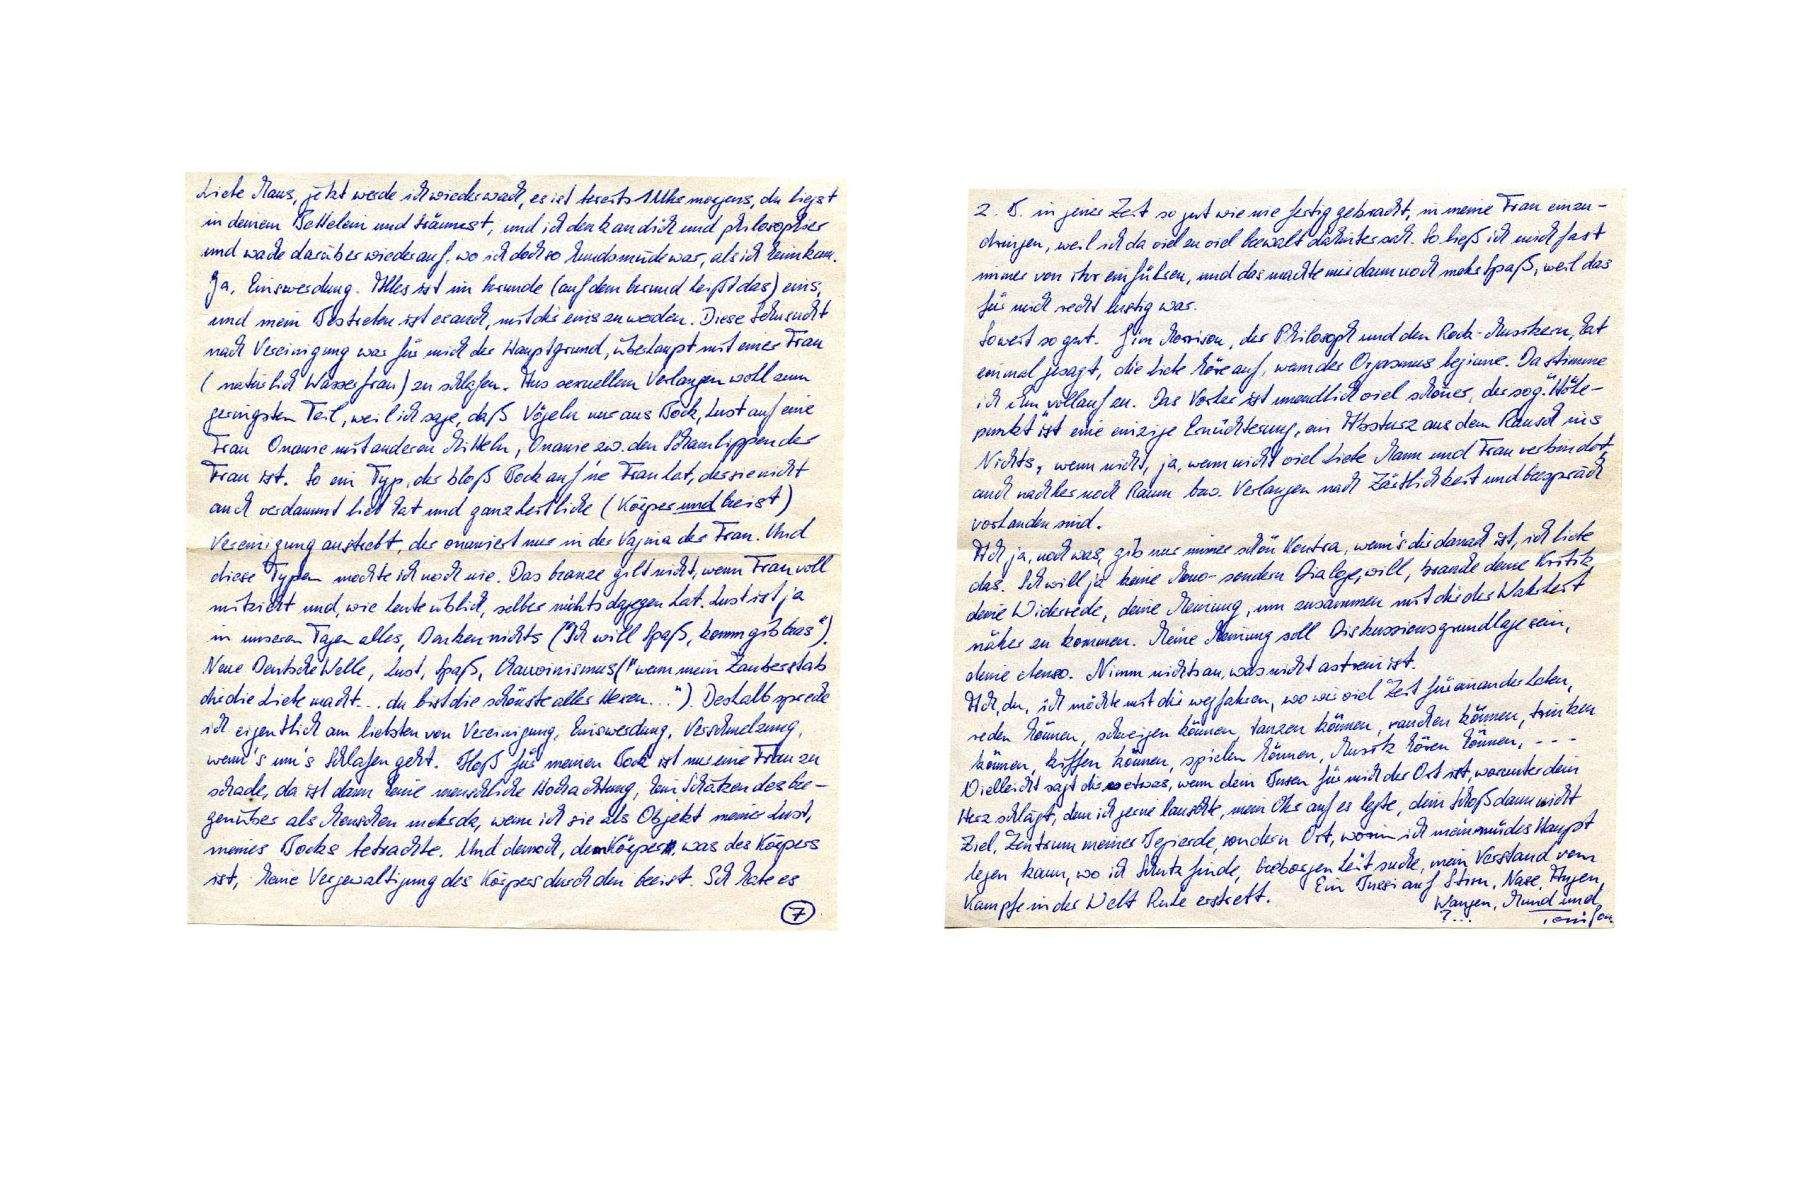 Liebe Maus, jetzt werde ich wieder wach, es ist bereits 1 Uhr morgens, du liegst
in deinem Bettelein und träumest, und ich denk an dich und philosophier
und wache darüber wieder auf, wo ich doch so hundsmüde war, als ich heimkam.
Ja, Einswerdung. Alles ist im Grunde (auf dem Grund heißt das) eins,
und mein Bestreben ist es auch, mit dir eins zu werden. Diese Sehnsucht
nach Vereinigung war für mich der Hauptgrund, überhaupt mit einer Frau
(natürlich Wasserfrau) zu schlafen. Aus sexuellem Verlangen wohl zum
geringsten Teil, weil ich sage, daß Vögeln nur aus Bock, Lust auf eine
Frau Onanie mit anderen Mitteln, Onanie zw. den Schamlippen der
Frau ist. So ein Typ, der bloß Bock auf 'ne Frau hat, der sie nicht
auch verdammt lieb hat und ganzheitliche (Körper und Geist)
Vereinigung anstrebt, der onaniert nur in der Vagina der Frau. Und
diese Typen mochte ich noch nie. Das Ganze gilt nicht, wenn Frau voll
mitzieht und, wie heute üblich, selber nichts dagegen hat. Lust ist ja
in unseren Tagen alles, Danken nichts ("Ich will Spaß, komm gib Gas").
Neue Deutsche Welle, Lust, Spaß, Chauvinismus ("wenn mein Zauberstab
dir die Liebe macht... du bist die schönste aller Hexen..."). Deshalb spreche
ich eigentlich am liebsten von Vereinigung, Einswerdung, Verschmelzung,
wenn's um's Schlafen geht. Bloß für meinen Bock ist mir eine Frau zu
schade, da ist dann keine menschliche Hochachtung, kein Schätzen des Ge-
genüber als Menschen mehr da, wenn ich sie als Objekt meiner Lust,
meines Bocks betrachte. Und dennoch, dem Körper, was des Körpers
ist, keine Vergewaltigung des Körpers durch den Geist. Ich habe es
7
z. B. in jener Zeit so gut wie nie fertig gebracht, in meine Frau einzu-
dringen, weil ich da viel zu viel Gewalt dahinter sah. So ließ ich mich fast
immer von ihr einführen, und das machte mir dann noch mehr Spaß, weil das
für mich recht lustig war.
Soweit so gut. Jim Morrison, der Philosoph und den Rock-Musikern, hat
einmal gesagt, die Liebe höre auf, wann der Orgasmus beginne. Da stimme
ich ihm vollauf zu. Das Vorher ist unendlich viel schöner, der sog. "Höhe-
punkt" ist eine einzige Ernüchterung, ein Absturz aus dem Rausch ins
Nichts, wenn nicht, ja, wenn nicht viel Liebe Mann und Frau verbindet,
auch nachher noch Raum bzw. Verlangen nach Zärtlichkeit und Gespräch
vorhanden sind.
Ach ja, noch was, gib mir immer schön Kontra, wenn's dir danach ist, ich liebe
das. Ich will ja keine Mono- sondern Dialoge, will, brauche deine Kritik,
deine Widerrede, deine Meinung, um zusammen mit dir der Wahrheit
näher zu kommen. Meine Meinung soll Diskussionsgrundlage sein,
deine ebenso. Nimm nichts an, was nicht astrein ist.
Ach, du, ich möchte mit dir wegfahren, wo wir viel Zeit füreinander haben,
reden können, schweigen können, tanzen können, rauchen können, trinken
können, kiffen können, spielen können, Musik hören können, - - -
Vielleicht sagt dir etwas, wenn dein Busen für mich der Ort ist, worunter dein
Herz schlägt, dem ich gerne lauschte, mein Ohr auf es legte, dein Schoß dann nicht
Ziel, Zentrum meiner Begierde, sondern Ort, worin ich mein müdes Haupt
legen kann, wo ich Schutz finde, Geborgenheit suche, mein Verstand vom
Kampfe in der Welt Ruhe erstrebt. Ein Bussi auf Stirn, Nase, Augen,
Wangen, Mund und
?...